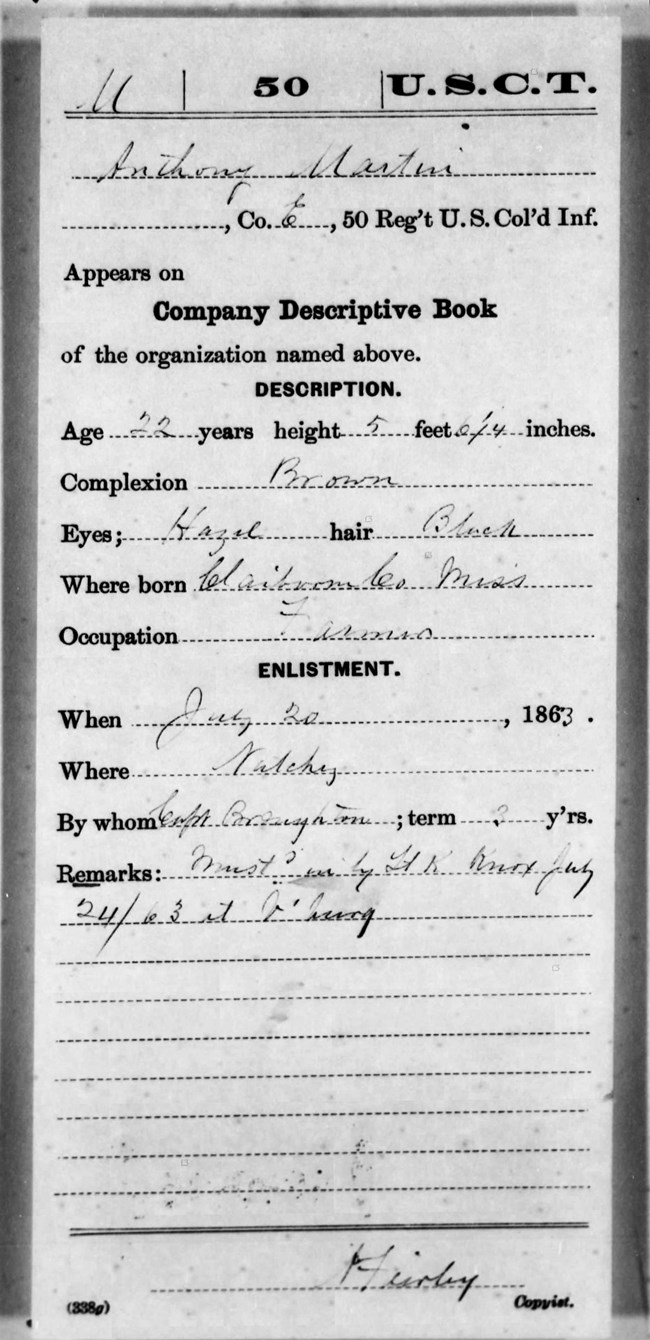 M | 50 | U.S.C.T.
Anthony Martin
, Co. E, 50 Reg't U.S. Col'd Inf.
Appears on
Company Descriptive Book
of the organization named above.
DESCRIPTION.
Age 22 years height 5 feet 6 1/4 inches.
Complexion Brown
Eyes; Hazel hair Black
Where born Claiborn Co Miss
Occupation Farmer
ENLISTMENT.
When July 20, 1863.
Where Natchez
By whom Capt Broughton; term 3 y'rs.
Remarks: Must'd in by Lt K Knox July
24/63 at V'burg
(338g) Copyist.